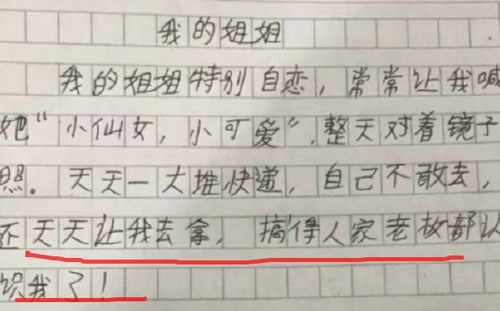 我的姐姐
我的姐姐特别自恋，常常让我喊
她“小仙女，小可爱”，整天对着镜子
照。天天一大堆快递，自己不敢去，
还天天让我去拿，搞得人家老板都认
识我了！